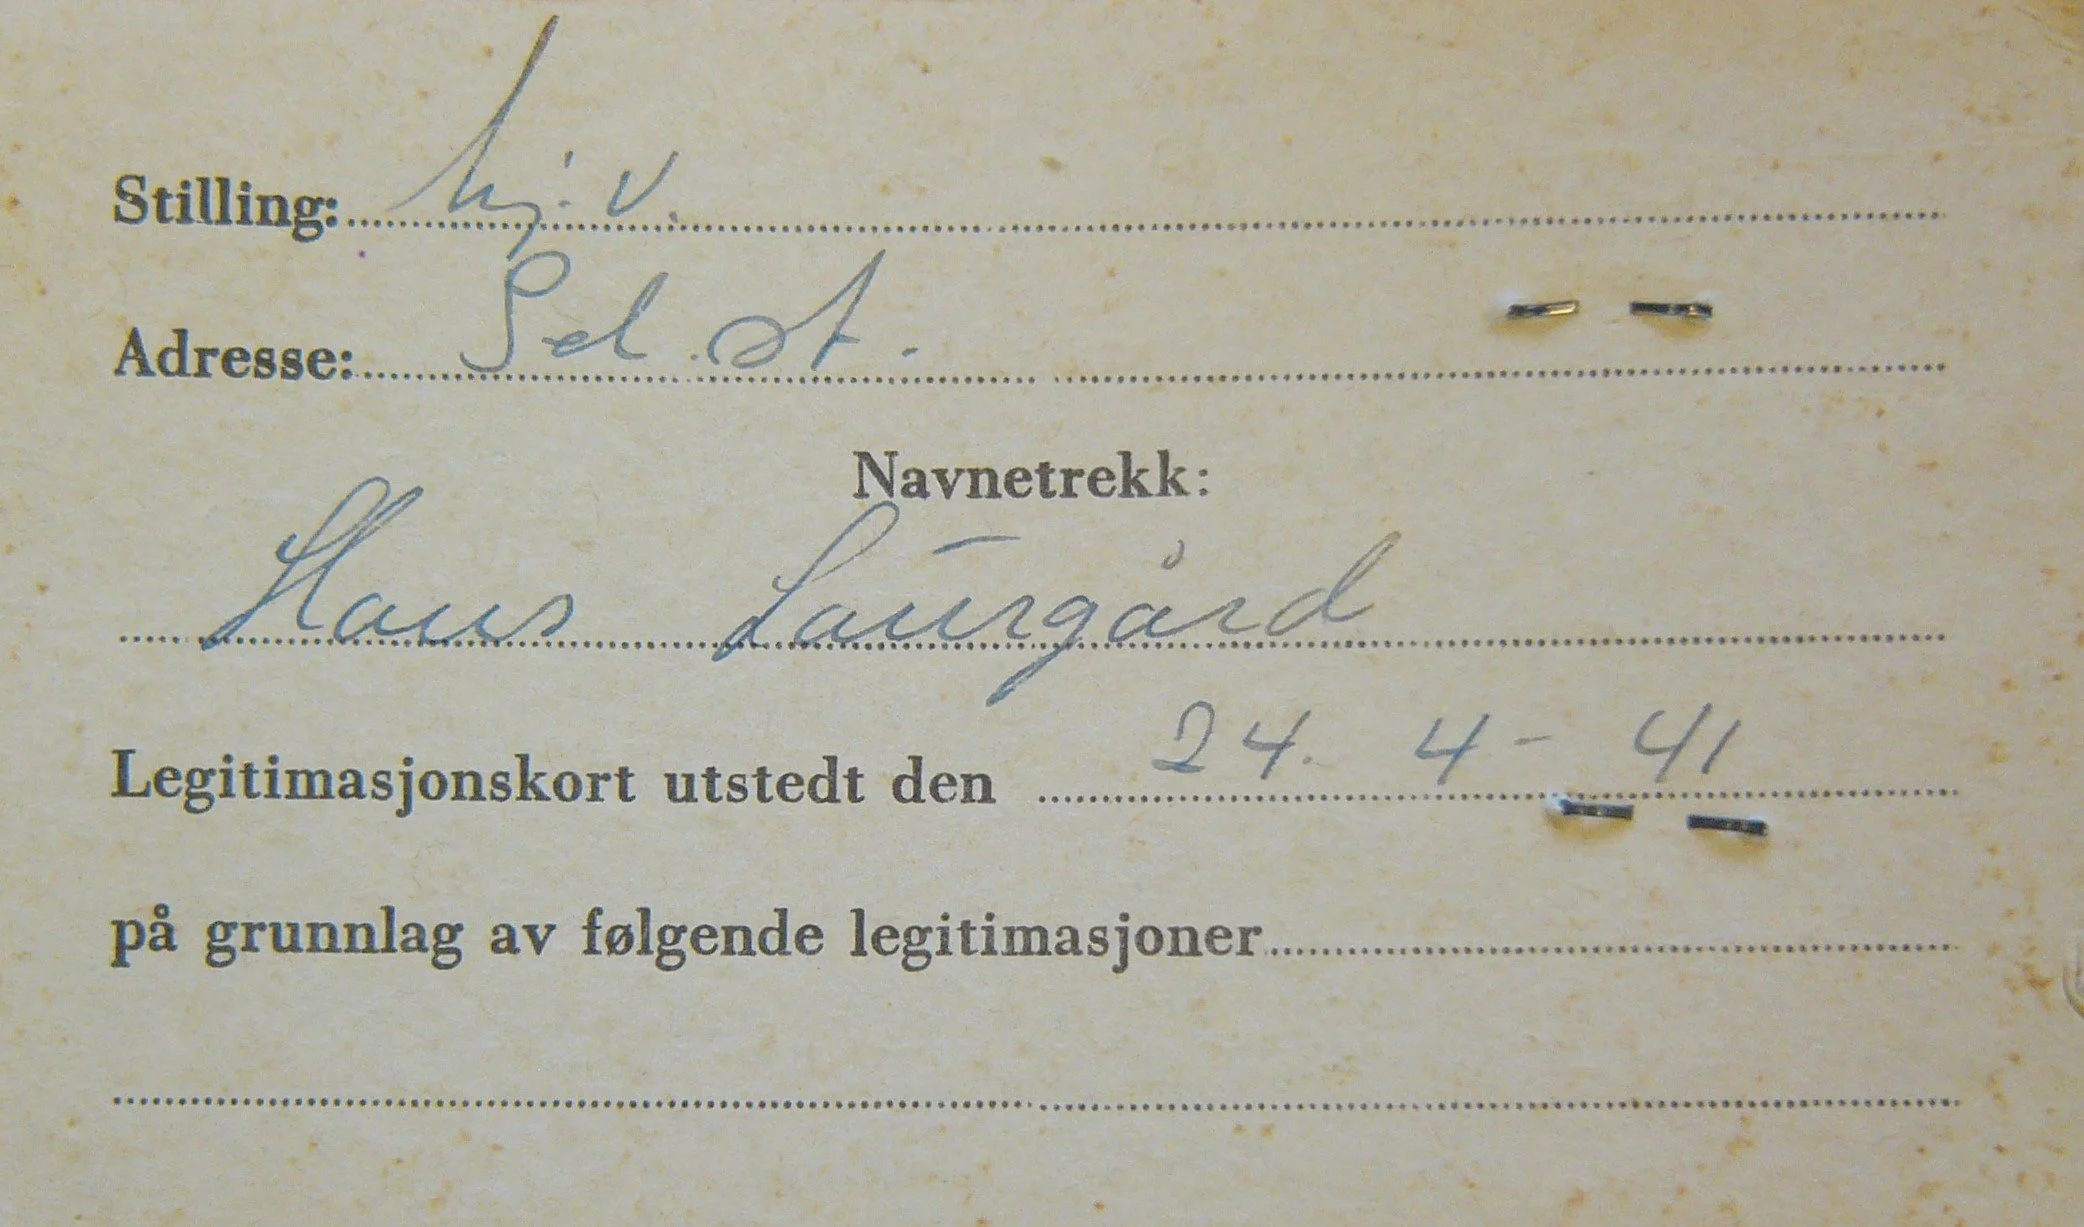 Stilling: hj. v.
Adresse: Sel st.
Navnetrekk:
Hans Laurgård
Legitimasjonskort utstedt den 24. 4 - 41
på grunnlag av følgende legitimasjoner